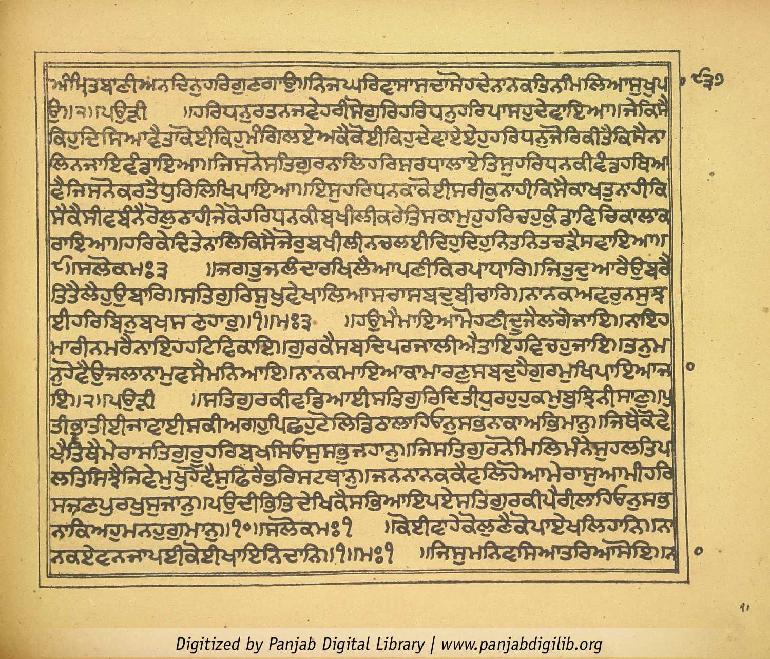 ਅੰਮ੍ਰਿਤਬਾਣੀਅਨਦਿਨੁਹਰਿਗੁਣਗਾਉ॥ਨਿਜਘਰਿਵਾਸਾਸਦਾਸੋਹਦੇਨਾਨਕਤਿਨਮਿਲਿਆਸੁਖੁਪ
ਉ॥੨॥ਪਉੜੀ ॥ਹਰਿਧਨੁਰਤਨਜਵੇਹਰੀਸੋਗੁਰਿਹਰਿਧਨੁਹਰਿਪਾਸਹੁਦੇਵਾਇਆ॥ਜੇਕਿਸੈ
ਕਿਹੁਦਿਸਿਆਵੈਤਾਕੋਈਕਿਹੁਮੰਗਿਲਏਅਕੈਕੋਈਕਿਹੁਦੇਵਾਏਏਹੁਹਰਿਧਨੁਜੋਰਿਕੀਤੈਕਿਸੈਨਾ
ਲਿਨਜਾਇਵੰਡਾਇਆ॥ਜਿਸਨੋਸਤਿਗੁਰਨਾਲਿਹਰਿਸਰਧਾਲਾਏਤਿਸੁਹਰਿਧਨਕੀਵੰਡਹਥਿਆ
ਵੈਜਿਸਨੋਕਰਤੈਧੁਰਿਲਿਖਿਪਾਇਆ॥ਇਸੁਹਰਿਧਨਕਾਕੋਈਸਰੀਕੁਨਾਹੀਕਿਸੈਕਾਖਤੁਨਾਹੀਕਿ
ਸੈਕੈਸੀਵਬੰਨੈਰੋਲੁਨਾਹੀਜੇਕੋਹਰਿਧਨਕੀਬਖੀਲੀਕਰੇਤਿਸਕਾਮੁਹੁਹਰਿਚਹੁਕੁੰਡਾਵਿਚਿਕਾਲਾਕ
ਰਾਇਆ॥ਹਰਿਕੇਦਿਤੇਨਾਲਿਕਿਸੈਜੋਰੁਬਖੀਲੀਨਚਲਈਦਿਹੁਦਿਹੁਨਿਤਨਿਤਚੜੈਸਵਾਇਆ॥
੯॥ਸਲੋਕਮਃ੩ ॥ਜਗਤੁਜਲੰਦਾਰਖਿਲੈਆਪਣੀਕਿਰਪਾਧਾਰਿ॥ਜਿਤੁਦੁਆਰੈਉਬਰੈ
ਤਿਤੈਲੈਹੁਉਬਾਰਿ॥ਸਤਿਗੁਰਿਸੁਖੁਵੇਖਾਲਿਆਸਚਾਸਬਦੁਬੀਚਾਰਿ॥ਨਾਨਕਅਵਰੁਨਸੁਝ
ਈਹਰਿਬਿਨੁਬਖਸਣਹਾਰੁ॥੧॥ਮਃ੩ ॥ਹਉਮੈਮਾਇਆਮੋਹਣੀਦੂਜੈਲਗੈਜਾਇ॥ਨਾਇਹ
ਮਾਰੀਨਮਰੈਨਾਇਹਹਟਿਵਿਕਾਇ॥ਗੁਰਕੈਸਬਦਿਪਰਜਾਲੀਐਤਾਇਹਵਿਚਹੁਜਾਇ॥ਤਨੁਮ
ਨੁਹੋਵੈਉਜਲਾਨਾਮੁਵਸੈਮਨਿਆਇ॥ਨਾਨਕਮਾਇਆਕਾਮਾਰਣੁਸਬਦੁਹੈਗੁਰਮੁਖਿਪਾਇਆਜ
ਇ॥੨॥ਪਉੜੀ ॥ਸਤਿਗੁਰਕੀਵਡਿਆਈਸਤਿਗੁਰਿਦਿਤੀਧੁਰਹੁਹੁਕਮੁਬੁਝਿਨੀਸਾਣੁ॥ਪੁ
ਤੀਭਾਤੀਈਜਾਵਾਈਸਕੀਅਗਹੁਪਿਛਹੁਟੋਲਿਡਿਠਾਲਾਹਿਓਨੁਸਭਨਾਕਾਅਭਿਮਾਨੁ॥ਜਿਥੈਕੋਵੇ
ਖੈਤਿਥੈਮੇਰਾਸਤਿਗੁਰੂਹਰਿਬਖਸਿਓਸੁਸਭੁਜਹਾਨੁ॥ਜਿਸਤਿਗੁਰਨੋਮਿਲਿਮੰਨੇਸੁਹਲਤਿਪ
ਲਤਿਸਿਝੈਜਿਵੇਮੁਖੁਹੋਵੈਸੁਫਿਰੈਭਰਿਸਟਥਾਨੁ॥ਜਨਨਾਨਕਕੈਵਲਿਹੋਆਮੇਰਾਸੁਆਮੀਹਰਿ
ਸਜਣਪੁਰਖੁਸੁਜਾਨੁ॥ਪਉਦੀਭਿਤਿਦੇਖਿਕੈਸਭਿਆਇਪਏਸਤਿਗੁਰਕੀਪੈਰੀਲਾਹਿਓਨੁਸਭ
ਨਾਕਿਅਹੁਮਨਹੁਗੁਮਾਨੁ॥੧੦॥ਸਲੋਕਮਃ੧ ॥ਕੋਈਵਾਹੇਕੋਲੁਣੈਕੋਪਾਏਖਲਿਹਾਨਿ॥ਨਾ
ਨਕਏਵਨਜਾਪਈਕੋਈਖਾਇਨਿਦਾਨਿ॥੧॥ਮਃ੧ ॥ਜਿਸੁਮਨਿਵਸਿਆਤਰਿਆਸੋਇ॥ਨ
Digitized by Panjab Digital Library | www.panjabdigilib.org